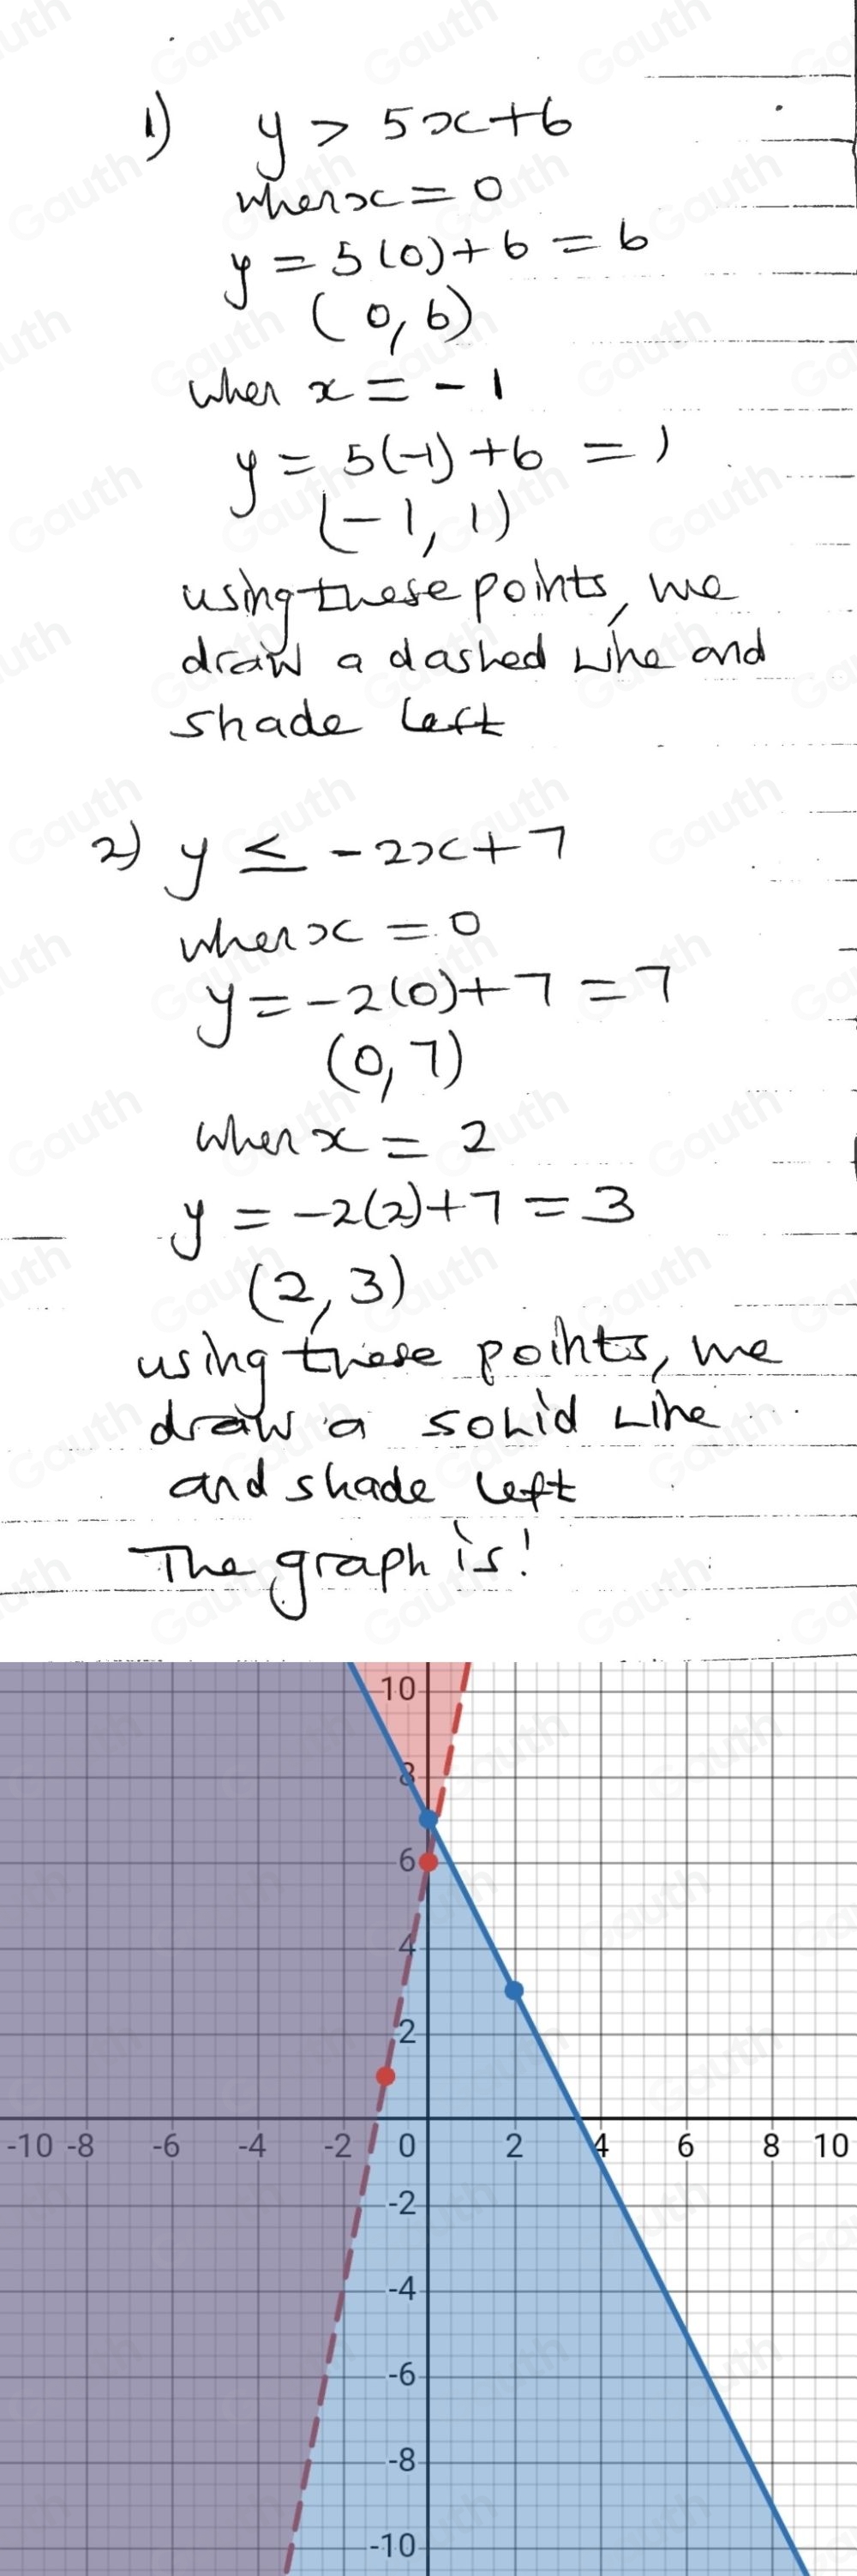 1) y > 5x+6
when x = 0
y = 5(0)+6 = 6
(0,6)
when x = -1
y = 5(-1)+6 = 1
(-1, 1)
using these points, we
draw a dashed line and
shade left
2) y ≤ -2x+7
when x = 0
y = -2(0)+7 = 7
(0,7)
when x = 2
y = -2(2)+7 = 3
(2, 3)
using these points, we
draw a solid line
and shade left
The graph is!
10
8
6
4
2
-10 -8 -6 -4 -2 0 2 4 6 8 10
-2
-4
-6
-8
-10
Gauth